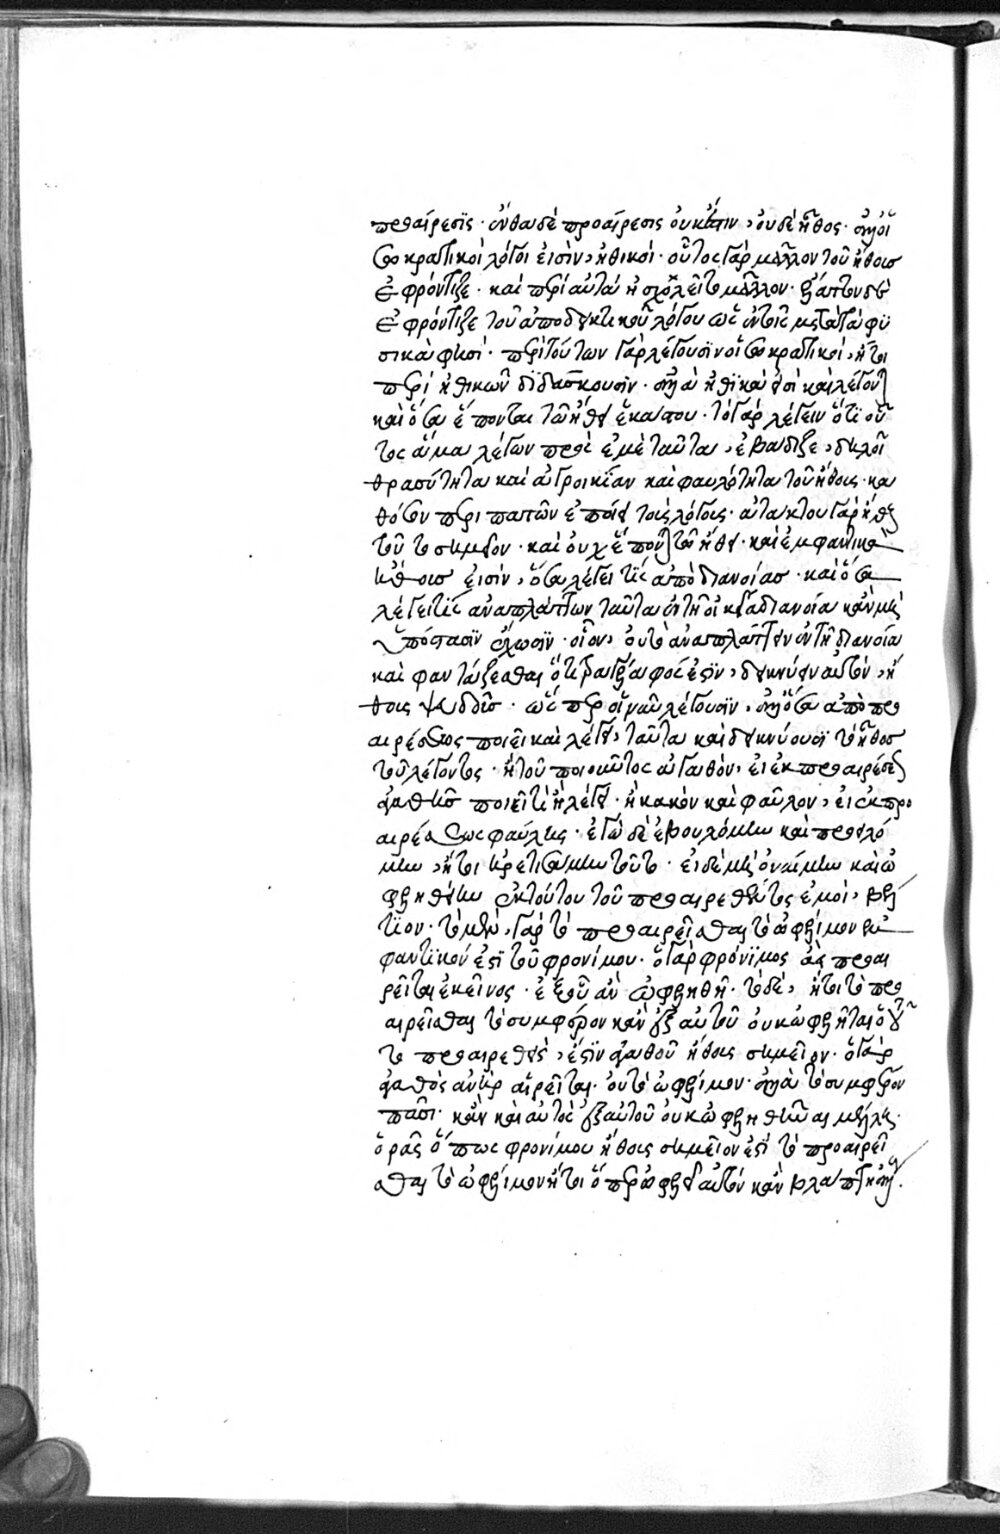 προαίρεσις · ἔνθα δὲ προαίρεσις οὐκ ἔστιν, οὐδὲ ἦθος · ἀλλ' οἱ
σωκρατικοὶ λόγοι εἰσὶν, ἠθικοί · οὗτος γὰρ μᾶλλον τοῦ ἤθους
ἐφρόντιζε · καὶ περὶ αὐτὰ ἠσχολεῖτο μᾶλλον ·
ἐφρόντιζε τοῦ ἀποδεικτικοῦ λόγου ὡς ἐν τοῖς μετὰ τὰ φυ
σικὰ φησί · περὶ τούτων γὰρ λέγουσιν οἱ σωκρατικοί, ἤτοι
περὶ ἠθικῶν διδάσκουσιν · ἀλλὰ ἠθικά εἰσι καὶ λέγονται
καὶ ὅσα ἕπονται τῶ ἤθει ἑκάστου · τὸ γὰρ λέγειν ὅτι οὗ
τος ἅμα λέγων πρὸς ἐμὲ ταῦτα, ἐβάδιζε, δηλοῖ
θρασύτητα καὶ ἀγροικίαν καὶ φαυλότητα τοῦ ἤθους · κα
θόσον περιπατῶν ἐποίει τοὺς λόγους · ἀτάκτου γὰρ ἤθους
τοῦτο σημεῖον · καὶ οὐχ ἕπονται τῶ ἤθει · καὶ ἐμφαντικὰ
ἤθους εἰσίν, ὅσα λέγει τις ἀπὸ διανοίας · καὶ ὅσα
λέγει τις ἀναπλάττων ταῦτα ἐν τῇ οἰκεία διανοία κἂν μὴ
ὑπόστασιν ἔχωσιν · οἷον, οὐ τὸ ἀναπλάττειν ἐν τῇ διανοία
καὶ φαντάζεσθαι ὅτι τραγέλαφός ἐστιν, δεικνύειν αὐτὸν, ἤ
θους ψευδοῦς · ὡς περὶ οὗ νῦν λέγουσιν, ἀλλ' ὅσα ἀπὸ προ
αιρέσεως ποιεῖ καὶ λέγει, ταῦτα καὶ δεικνύουσι τὸ ἦθος
τοῦ λέγοντος · ἢ τοῦ ποιοῦντος ἀγαθὸν, εἰ ἐκ προαιρέσεως
ἀγαθῆς ποιεῖ τι ἢ λέγει · ἢ κακὸν καὶ φαῦλον, εἰ ἐκ προ
αιρέσεως φαύλης · ἐγὼ δὲ ἐβουλόμην καὶ προειλό
μην, ἤτοι ᾑρετισάμην τοῦτο · εἰ δὲ μὴ ὀναίμην καὶ ὠ
φεληθείην ἐκ τούτου τοῦ προαιρεθέντος ἐμοί, βέλ
τιον · τὸ μὲν, γὰρ τὸ προαιρεῖσθαι τὸ ὠφέλιμον ἐμ
φαντικόν ἐστι τοῦ φρονίμου · ὁ γὰρ φρόνιμος ἀεὶ προαι
ρεῖται ἐκεῖνος · ἐξ οὗ ἂν ὠφεληθῇ · τὸ δὲ, ἤτοι τὸ προ
αιρεῖσθαι τὸ συμφέρον κἂν ἐξ αὐτοῦ οὐκ ὠφελῆται ὁ τοῦ
το προαιρεθεὶς, ἐστὶν ἀγαθοῦ ἤθους σημεῖον · ὁ γὰρ
ἀγαθὸς ἀνὴρ αἱρεῖται · οὐ τὸ ὠφέλιμον · ἀλλὰ τὸ συμφέρον
πᾶσι · κἂν καὶ αὐτὸς ἐξ αὐτοῦ οὐκ ὠφεληθῆναι μέλλῃ ·
ὁρᾶς ὅπως φρονίμου ἤθους σημεῖόν ἐστι τὸ προαιρεῖ
σθαι τὸ ὠφέλιμον ἤτοι ὅπερ ὠφελεῖ αὐτὸν κἂν βλάπτῃ ἄλλον.